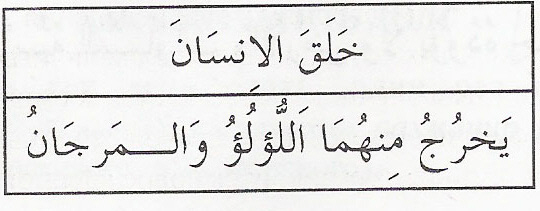 خَلَقَ الاِنسَانَ
يَخرُجُ مِنهُمَا اَللُّؤلُؤُ وَالـــمَرجَانُ